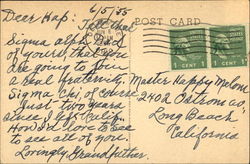 6/5/55
Dear Hap: Tell that
Sigma Alph. Dad
of yours, that you
are going to join
a real fraternity.
Sigma Chi, of course
Just two years
since I left Calif.
How I'd love to see
to see all of you.
Lovingly, Grandfather.
POST CARD
1 CENT 1
1 CENT 1
Master Happy Malone
2402
Long Beach
California